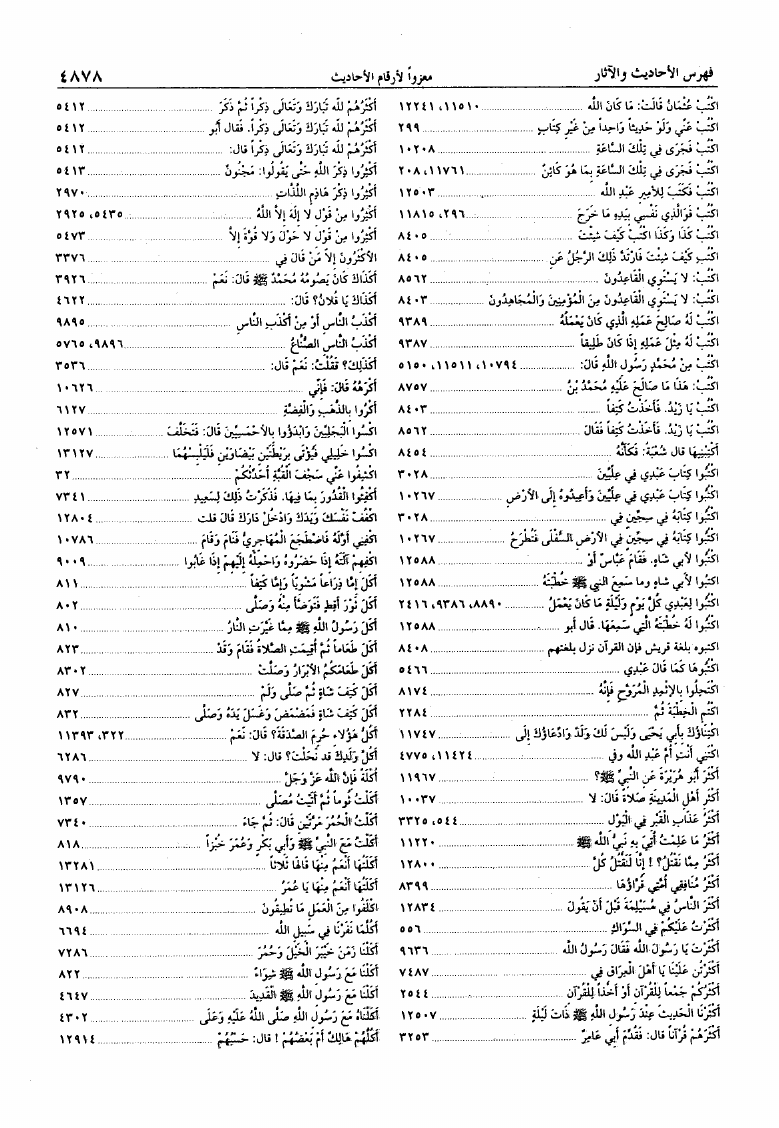 فهرس الأحاديث والآثار
معزواً لأرقام الأحاديث
٤٨٧٨
اكْتُبْ عُثْمَانُ قَالَتْ: مَا كَانَ اللّه ... ١١٥١٠، ١٢٢٤١
اكْتُبْ عَنِّي وَلَوْ حَدِيثاً وَاحِداً مِنْ غَيْرِ كِتَابٍ ... ٢٩٩
اكْتُبْ فَجَرَى فِي تِلْكَ السَّاعَةِ ... ١٠٢٠٨
اكْتُبْ فَجَرَى فِي تِلْكَ السَّاعَةِ بِمَا هُوَ كَائِنٌ ... ١١٧٦١، ٢٠٨
اكْتُبْ فَكَتَبَ لِلأَمِيرِ عَبْدِ اللّه ... ١٢٥٠٣
اكْتُبْ فَوَالَّذِي نَفْسِي بِيَدِهِ مَا خَرَجَ ... ٢٩٦، ١١٨١٥
اكْتُبْ كَذَا وَكَذَا اكْتُبْ كَيْفَ شِئْتَ ... ٨٤٠٥
اكْتُبْ كَيْفَ شِئْتَ فَارْتَدَّ ذَلِكَ الرَّجُلُ عَنِ ... ٨٤٠٥
اكْتُبْ: لا يَسْتَوِي القَاعِدُونَ ... ٨٥٦٢
اكْتُبْ: لا يَسْتَوِي القَاعِدُونَ مِنَ الْمُؤْمِنِينَ وَالْمُجَاهِدُونَ ... ٨٤٠٣
اكْتُبْ لَهُ صَالِحَ عَمَلِهِ الَّذِي كَانَ يَعْمَلُهُ ... ٩٣٨٩
اكْتُبْ لَهُ مِثْلَ عَمَلِهِ إِذَا كَانَ طَلِيقاً ... ٩٣٨٧
اكْتُبْ مِنْ مُحَمَّدٍ رَسُولِ اللّهِ قَالَ: ... ١٠٧٩٤، ١١٥١١، ٥١٥٠
اكْتُبْ: هَذَا مَا صَالَحَ عَلَيْهِ مُحَمَّدُ بْنُ ... ٨٧٥٧
اكْتُبْ يَا زَيْدُ. فَأَخَذْتُ كَتِفاً ... ٨٤٠٣
اكْتُبْ يَا زَيْدُ. فَأَخَذْتُ كَتِفاً فَقَالَ ... ٨٥٦٢
أَكْتِبْنِيهَا قال شُعْبَةُ: فَكَأَنَّهُ ... ٨٤٥٤
اكْتُبُوا كِتَابَ عَبْدِي فِي عِلِّيِّينَ ... ٣٠٢٨
اكْتُبُوا كِتَابَ عَبْدِي فِي عِلِّيِّينَ وَأَعِيدُوهُ إِلَى الأَرْضِ ... ١٠٢٦٧
اكْتُبُوا كِتَابَهُ فِي سِجِّينٍ فِي ... ٣٠٢٨
اكْتُبُوا كِتَابَهُ فِي سِجِّينٍ فِي الأَرْضِ السُّفْلَى فَتُطْرَحُ ... ١٠٢٦٧
اكْتُبُوا لأَبِي شَاهٍ. فَقَامَ عَبَّاسٌ أَوْ ... ١٢٥٨٨
اكْتُبُوا لأَبِي شاهٍ وما سَمِعَ النبي ﷺ خُطْبَتَهُ ... ١٢٥٨٨
اكْتُبُوا لِعَبْدِي كُلَّ يَوْمٍ وَلَيْلَةٍ مَا كَانَ يَعْمَلُ ... ٨٨٩٠، ٩٣٨٦، ٢٤١٦
اكْتُبُوا لَهُ خُطْبَتَهُ الَّتِي سَمِعَهَا. قال أبو ... ١٢٥٨٨
اكتبوه بلغة قريش فإن القرآن نزل بلغتهم ... ٨٤٠٨
اكْتُبُوهَا كَمَا قَالَ عَبْدِي ... ٥٤٦٦
اكْتَحِلُوا بِالإِثْمِدِ الْمُرَوَّحِ فَإِنَّهُ ... ٨١٧٤
اكْتُمِ الْخِطْبَةَ ثُمَّ ... ٢٢٨٤
اكْتِنَاؤُكَ بِأَبِي يَحْيَى وَلَيْسَ لَكَ وَلَدٌ وَادِّعَاؤُكَ إِلَى ... ١١٧٤٧
اكْتَنِي أَنْتِ أُمَّ عَبْدِ اللّه وفي ... ١١٤٢٤، ٤٧٧٥
أَكْثَرَ أَبُو هُرَيْرَةَ عَنِ النَّبِيِّ ﷺ؟ ... ١١٩٦٧
أَكْثَرُ أَهْلِ الْمَدِينَةِ صَلاَةً قَالَ: لا ... ١٠٠٣٧
أَكْثَرُ عَذَابِ القَبْرِ فِي الْبَوْلِ ... ٥٤٤، ٣٣٢٥
أَكْثَرُ مَا عَلِمْتُ أُتِيَ بِهِ نَبِيُّ اللّهِ ﷺ ... ١١٢٢٠
أَكْثَرُ مِمَّا نَقْتُلُ؟ ! إِنَّا لَنَقْتُلُ كُلَّ ... ١٢٨٠٠
أَكْثَرُ مُنَافِقِي أُمَّتِي قُرَّاؤُهَا ... ٨٣٩٩
أَكْثَرَ النَّاسُ فِي مُسَيْلِمَةَ قَبْلَ أَنْ يَقُولَ ... ١٢٨٣٤
أَكْثَرْتُ عَلَيْكُمْ فِي السِّوَاكِ ... ٥٥٦
أَكْثَرْتَ يَا رَسُولَ اللّه فَقَالَ رَسُولُ اللّه ... ٩٦٣٦
أَكْثَرْتُنَّ عَلَيْنَا يَا أَهْلَ الْعِرَاقِ فِي ... ٧٤٨٧
أَكْثَرُكُمْ جَمْعاً لِلْقُرآنِ أَوْ أَخْذاً لِلْقُرآنِ ... ٢٥٤٤
أَكْثَرْنَا الْحَدِيثَ عِنْدَ رَسُولِ اللّهِ ﷺ ذَاتَ لَيْلَةٍ ... ١٢٥٠٧
أَكْثَرُهُمْ قُرْآناً قال: فَقَدَّمَ أَبِي عَامِرٌ ... ٣٢٥٣
أَكْثَرُهُمْ للّه تَبَارَكَ وَتَعَالَى ذِكْراً ثُمَّ ذَكَرَ ... ٥٤١٢
أَكْثَرُهُمْ للّه تَبَارَكَ وَتَعَالَى ذِكْراً. فقال أبو ... ٥٤١٢
أَكْثَرُهُمْ للّه تَبَارَكَ وَتَعَالَى ذِكْراً قال: ... ٥٤١٢
أَكْثِرُوا ذِكْرَ اللّهِ حَتَّى يَقُولُوا: مَجْنُونٌ ... ٥٤١٣
أَكْثِرُوا ذِكْرَ هَاذِمِ اللَّذَّاتِ ... ٢٩٧٠
أَكْثِرُوا مِنْ قَوْلِ لا إِلَهَ إِلاَّ اللّهُ ... ٥٤٣٥، ٢٩٢٥
أَكْثِرُوا مِنْ قَوْلِ لا حَوْلَ وَلا قُوَّةَ إِلاَّ ... ٥٤٧٣
الأَكْثَرُونَ إِلاَّ مَنْ قَالَ فِي ... ٣٣٧٦
أَكَذَاكَ كَانَ يَصُومُهُ مُحَمَّدٌ ﷺ قَالَ: نَعَمْ ... ٣٩٢٦
أَكَذَاكَ يَا فُلانُ؟ قَالَ: ... ٤٦٢٢
أَكْذَبُ النَّاسِ أَوْ مِنْ أَكْذَبِ النَّاسِ ... ٩٨٩٥
أَكْذَبُ النَّاسِ الصُّنَّاعُ ... ٩٨٩٦، ٥٧٦٥
أَكَذَلِكَ؟ فَقُلْتُ: نَعَمْ قال: ... ٣٥٣٦
أَكْرَهُهُ قَالَ: فَإِنِّي ... ١٠٦٢٦
أَكْرُوا بِالذَّهَبِ وَالْفِضَّةِ ... ٦١٢٧
اكْسُوا الْبَجَلِيِّينَ وَابْدَؤُوا بِالأَحْمَسِيِّينَ قَالَ: فَتَخَلَّفَ ... ١٢٥٧١
اكْسُوا خَلِيلِي فَيُؤْتَى بِرَيْطَتَيْنِ بَيْضَاوَيْنِ فَلَيَلْبِسُهُمَا ... ١٣١٢٧
اكْشِفُوا عَنِّي سَجْفَ الْقُبَّةِ أُحَدِّثُكُمْ ... ٣٢
أَكْفِئُوا الْقُدُورَ بِمَا فِيهَا. فَذَكَرْتُ ذَلِكَ لِسَعِيدٍ ... ٧٣٤١
اكْفُفْ نَفْسَكَ وَيَدَكَ وَادْخُلْ دَارَكَ قَالَ قلت ... ١٢٨٠٤
اكْفِنِي أَوَّلَهُ فَاضْطَجَعَ الْمُهَاجِرِيُّ فَنَامَ وَقَامَ ... ١٠٧٨٦
اكْفِهِمْ آلَتَهُ إِذَا حَضَرُوهُ وَاحْمِلْهُ إِلَيْهِمْ إِذَا غَابُوا ... ٩٠٠٩
أَكَلَ إِمَّا ذِرَاعاً مَشْوِيّاً وَإِمَّا كَتِفاً ... ٨١١
أَكَلَ ثَوْرَ أَقِطٍ فَتَوَضَّأَ مِنْهُ وَصَلَّى ... ٨٠٢
أَكَلَ رَسُولُ اللّهِ ﷺ مِمَّا غَيَّرَتِ النَّارُ ... ٨١٠
أَكَلَ طَعَاماً ثُمَّ أُقِيمَتِ الصَّلاةُ فَقَامَ وَقَدْ ... ٨٢٣
أَكَلَ طَعَامَكُمُ الأَبْرَارُ وَصَلَّتْ ... ٨٣٠٢
أَكَلَ كَتِفَ شَاةٍ ثُمَّ صَلَّى وَلَمْ ... ٨٢٧
أَكَلَ كَتِفَ شَاةٍ فَمَضْمَضَ وَغَسَلَ يَدَهُ وَصَلَّى ... ٨٣٢
أَكُلُّ هَؤُلاءِ حُرِمَ الصَّدَقَةَ؟ قَالَ: نَعَمْ ... ٣٢٢، ١١٣٩٣
أَكُلَّ وَلَدِكَ قد نَحَلْتَ؟ قال: لا ... ٦٢٨٦
أَكْلَهُ فَإِنَّ اللّه عَزَّ وَجَلَّ ... ٩٧٩٠
أَكَلْتُ ثُوماً ثُمَّ أَتَيْتُ مُصَلَّى ... ١٣٥٧
أَكَلْتُ الْحُمُرَ مَرَّتَيْنِ قَالَ: ثُمَّ جَاءَ ... ٧٣٤٠
أَكَلْتُ مَعَ النبيِّ ﷺ وَأَبِي بَكْرٍ وَعُمَرَ خُبْزاً ... ٨١٨
أَكَلَتُهَا أَنْعَمُ مِنْهَا قَالَهَا ثَلاَثاً ... ١٣٢٨١
أَكَلَتُهَا أَنْعَمُ مِنْهَا يَا عُمَرُ ... ١٣١٢٦
اكْلَفُوا مِنَ العَمَلِ مَا تُطِيقُونَ ... ٨٩٠٨
أَكُلَّمَا نَفَرْنَا فِي سَبِيلِ اللّه ... ٦٦٩٤
أَكَلْنَا زَمَنَ خَيْبَرَ الْخَيْلَ وَحُمُرَ ... ٧٢٨٦
أَكَلْنَا مَعَ رَسُولِ اللّه ﷺ شِوَاءً ... ٨٢٢
أَكَلْنَا مَعَ رَسُولِ اللّهِ ﷺ الْقَدِيدَ ... ٤٦٤٧
أَكَلْنَاهُ مَعَ رَسُولِ اللّهِ صَلَّى اللَّهُ عَلَيْهِ وَعَلَى ... ٤٣٠٢
أَكُلُّهُمْ هَالِكٌ أَمْ بَعْضُهُمْ ! قال: حَسْبُهُمْ ... ١٢٩١٤